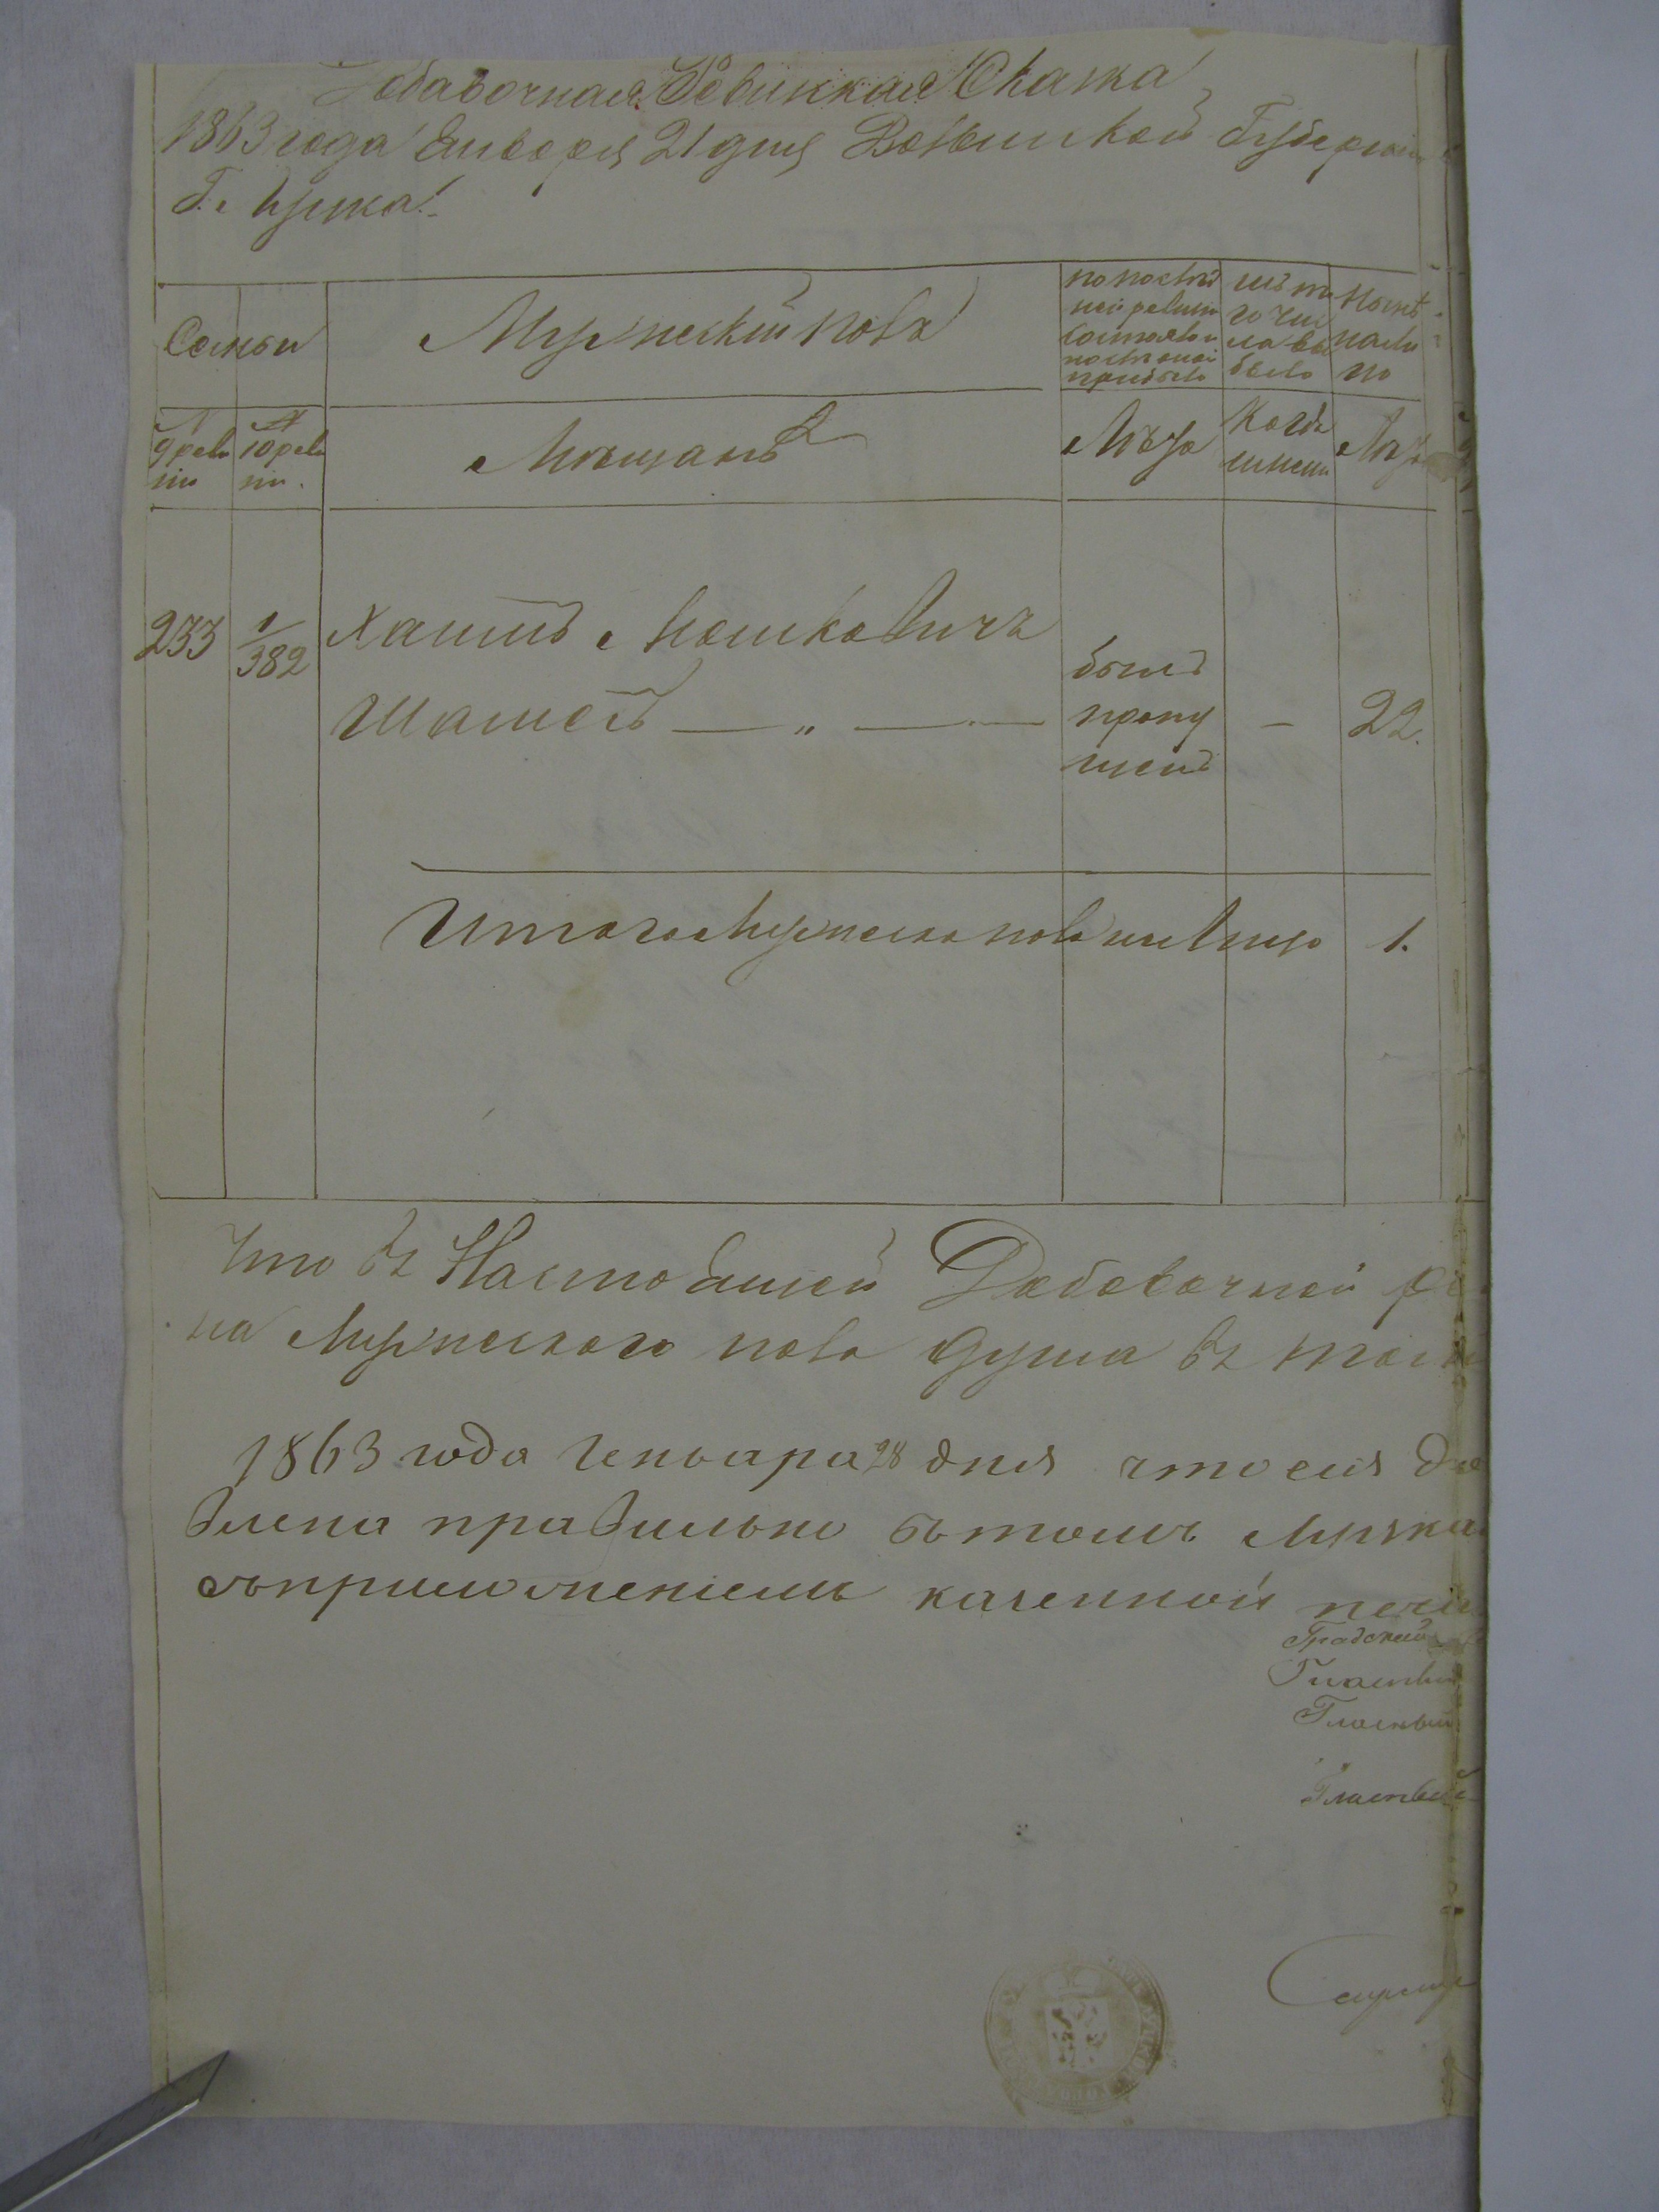 Добавочная Ревизкая Скаска
1863 года Января 21 дня Волынской Губерніи
Г. Луцка
Семьи
Мужескій полъ
по послѣд
ней ревизіи
состояло и
послѣ оной
прибыло
изъ то
го чис
ла вы
было
Нынѣ
нали
цо
№
9 реви
зіи
№
10 реви
зіи.
Мѣщанъ
Лѣта
Когда
имено
Лѣта
233
1/382
Хаимъ Мошковичъ
Шаметъ — „ —
былъ
пропу
щенъ
—
22.
Итого Мужеска пола на лицо 1.
Что въ Настоящей Добавочной
на Мужескаго пола душа въ том
1863 года Генваря 28 дня что сия До
влена правильно въ томъ Луцка
съ приложеніемъ казенной печа
Градский
Гласный
Гласный
Гласный